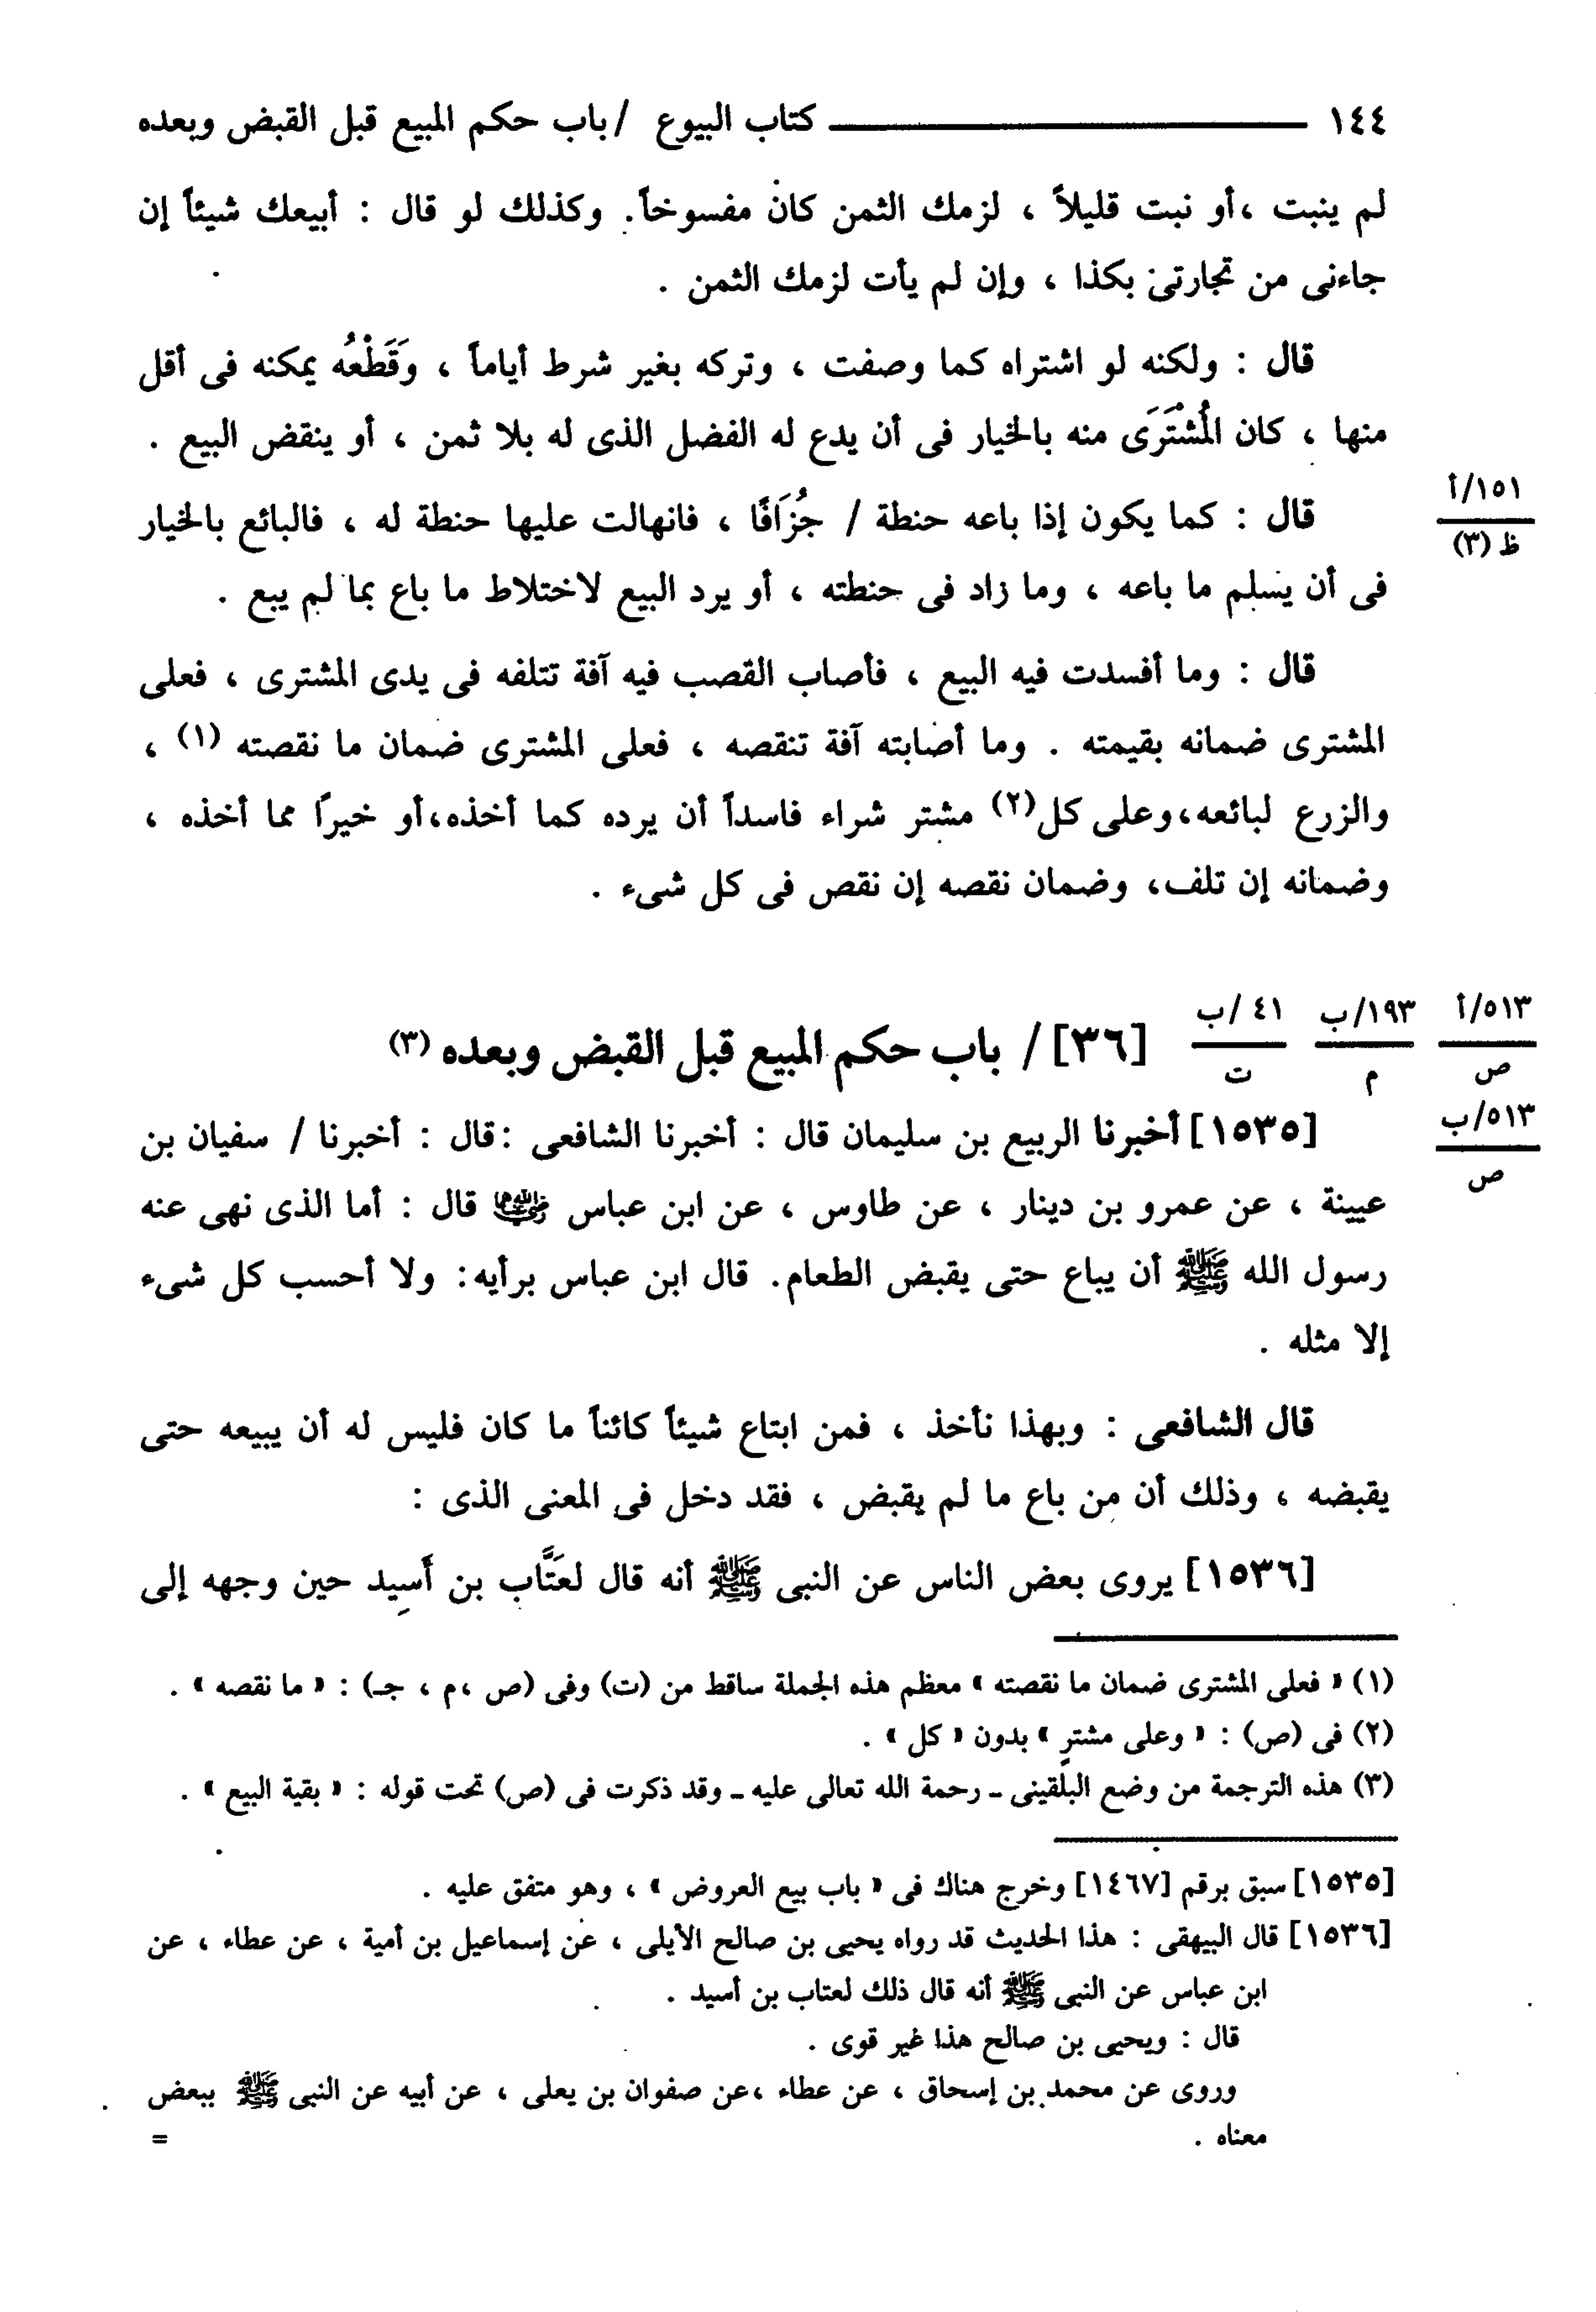 ١٤٤ كتاب البيوع / باب حكم المبيع قبل القبض وبعده
لم ينبت ،أو نبت قليلاً ، لزمك الثمن كان مفسوخاً. وكذلك لو قال : أبيعك شيئاً إن
جاءنى من تجارتى بكذا ، وإن لم يأت لزمك الثمن .
قال : ولكنه لو اشتراه كما وصفت ، وتركه بغير شرط أياماً ، وَقَطْعُه يمكنه فى أقل
منها ، كان الْمُشْتَرَى منه بالخيار فى أن يدع له الفضل الذى له بلا ثمن ، أو ينقض البيع .
١٥١/أ
ظ (٣)
قال : كما يكون إذا باعه حنطة / جُزَافًا ، فانهالت عليها حنطة له ، فالبائع بالخيار
فى أن يسلم ما باعه ، وما زاد فى حنطته ، أو يرد البيع لاختلاط ما باع بما لم يبع .
قال : وما أفسدت فيه البيع ، فأصاب القصب فيه آفة تتلفه فى يدى المشترى ، فعلى
المشترى ضمانه بقيمته . وما أصابته آفة تنقصه ، فعلى المشترى ضمان ما نقصته (١) ،
والزرع لبائعه،وعلى كل(٢) مشتر شراء فاسداً أن يرده كما أخذه،أو خيرًا مما أخذه ،
وضمانه إن تلف، وضمان نقصه إن نقص فى كل شىء .
٥١٣/أ
ص
١٩٣/ب
م
٤١/ب
ت
[٣٦] / باب حكم المبيع قبل القبض وبعده (٣)
٥١٣/ب
ص
[١٥٣٥] أخبرنا الربيع بن سليمان قال : أخبرنا الشافعى :قال : أخبرنا / سفيان بن
عيينة ، عن عمرو بن دينار ، عن طاوس ، عن ابن عباس رضي الله عنهما قال : أما الذى نهى عنه
رسول الله ﷺ أن يباع حتى يقبض الطعام. قال ابن عباس برأيه: ولا أحسب كل شىء
إلا مثله .
قال الشافعى : وبهذا نأخذ ، فمن ابتاع شيئاً كائناً ما كان فليس له أن يبيعه حتى
يقبضه ، وذلك أن من باع ما لم يقبض ، فقد دخل فى المعنى الذى :
[١٥٣٦] يروى بعض الناس عن النبى ﷺ أنه قال لعَتَّاب بن أَسِيد حين وجهه إلى
(١) « فعلى المشترى ضمان ما نقصته » معظم هذه الجملة ساقط من (ت) وفى (ص ،م ، جـ) : « ما نقصه » .
(٢) فى (ص) : « وعلى مشترٍ » بدون « كل » .
(٣) هذه الترجمة من وضع البلقينى ـ رحمة الله تعالى عليه ـ وقد ذكرت فى (ص) تحت قوله : « بقية البيع » .
[١٥٣٥] سبق برقم [١٤٦٧] وخرج هناك فى « باب بيع العروض » ، وهو متفق عليه .
[١٥٣٦] قال البيهقى : هذا الحديث قد رواه يحيى بن صالح الأيلى ، عن إسماعيل بن أمية ، عن عطاء ، عن
ابن عباس عن النبى ﷺ أنه قال ذلك لعتاب بن أسيد .
قال : ويحيى بن صالح هذا غير قوى .
وروى عن محمد بن إسحاق ، عن عطاء ،عن صفوان بن يعلى ، عن أبيه عن النبى ﷺ ببعض
معناه . =